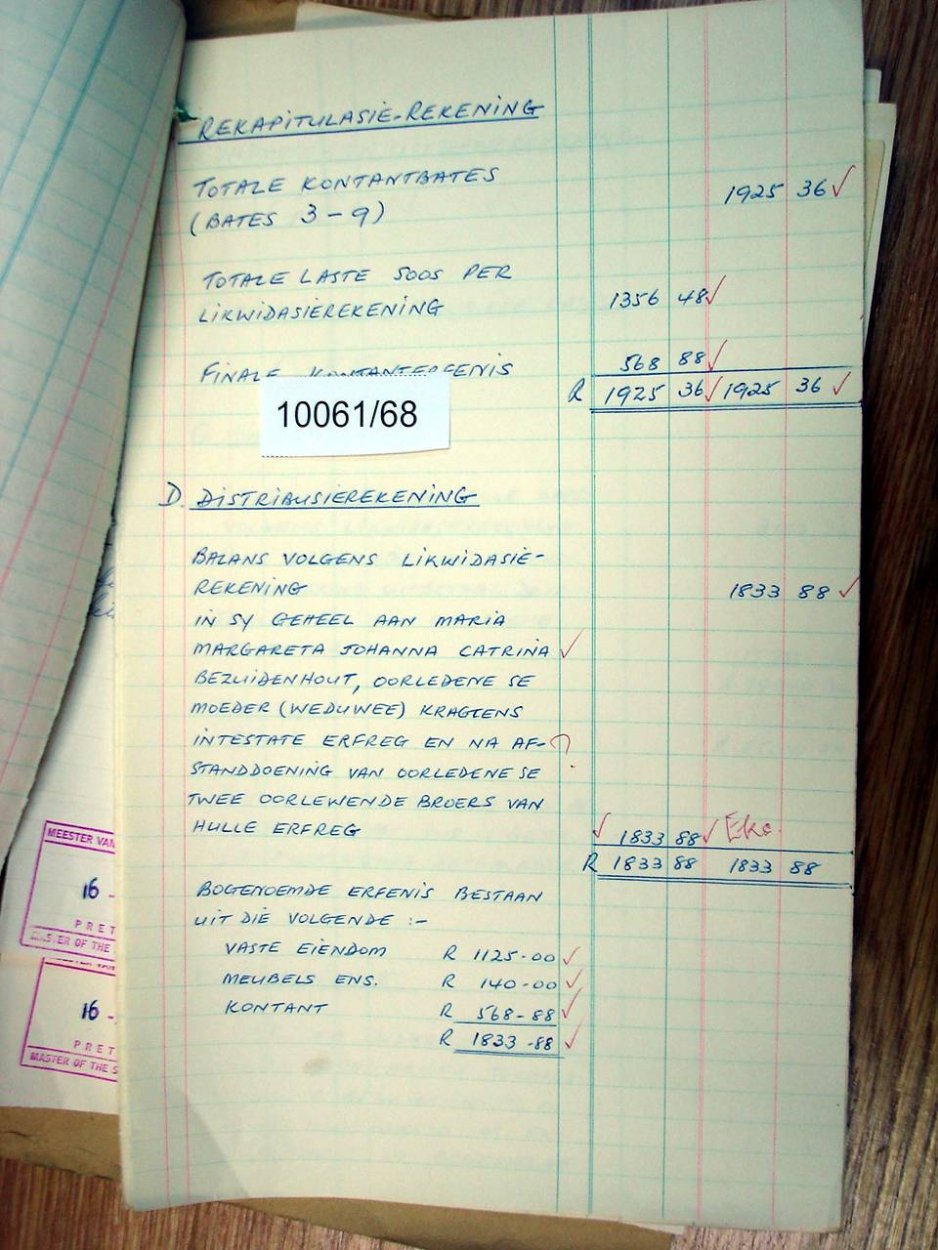 REKAPITULASIE-REKENING
TOTALE KONTANTBATES
(BATES 3-9) 1925 36
TOTALE LASTE SOOS PER
LIKWIDASIEREKENING 1356 48
FINALE KONTANTERFENIS 568 88
R 1925 36 1925 36
10061/68
D. DISTRIBUSIEREKENING
BALANS VOLGENS LIKWIDASIE-
REKENING 1833 88
IN SY GEHEEL AAN MARIA
MARGARETA JOHANNA CATRINA
BEZUIDENHOUT, OORLEDENE SE
MOEDER (WEDUWEE) KRAGTENS
INTESTATE ERFREG EN NA AF-
STANDDOENING VAN OORLEDENE SE
TWEE OORLEWENDE BROERS VAN
HULLE ERFREG 1833 88
R 1833 88 1833 88
BOGENOEMDE ERFENIS BESTAAN
UIT DIE VOLGENDE :-
VASTE EIENDOM R 1125-00
MEUBELS ENS. R 140-00
KONTANT R 568-88
R 1833-88
MEESTER VAN
16 -
PRET
OF THE
16 -
PRET
MASTER OF THE S